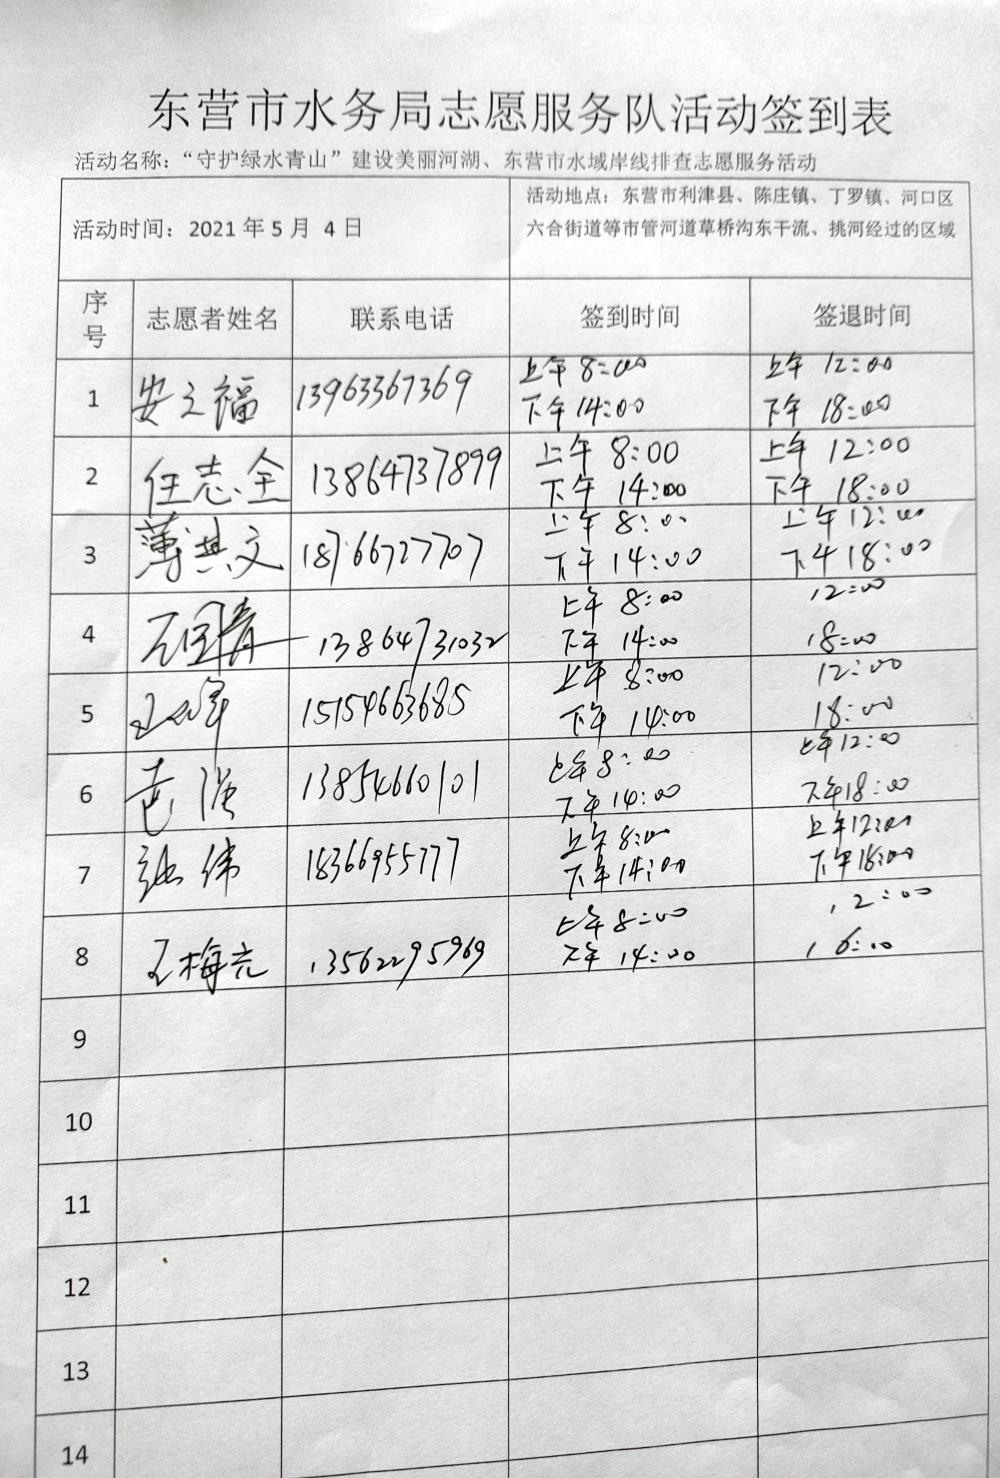 东营市水务局志愿服务队活动签到表
活动名称：“守护绿水青山”建设美丽河湖、东营市水域岸线排查志愿服务活动
活动时间：2021年5月 4日
活动地点：东营市利津县、陈庄镇、丁罗镇、河口区
六合街道等市管河道草桥沟东干流、挑河经过的区域
序号 志愿者姓名 联系电话 签到时间 签退时间
1 安立福 13963367369 上午 8:00 上午 12:00
下午 14:00 下午 18:00
2 任志全 13864737899 上午 8:00 上午 12:00
下午 14:00 下午 18:00
3 薄其文 18766727707 上午 8:00 上午 12:00
下午 14:00 下午 18:00
4 13864731032 上午 8:00 12:00
下午 14:00 18:00
5 15154663685 上午 8:00 12:00
下午 14:00 18:00
6 13854660101 上午 8:00 上午 12:00
下午 14:00 下午 18:00
7 张伟 18366955777 上午 8:00 上午 12:00
下午 14:00 下午 18:00
8 王梅亮 13562295969 上午 8:00 12:00
下午 14:00
9
10
11
12
13
14